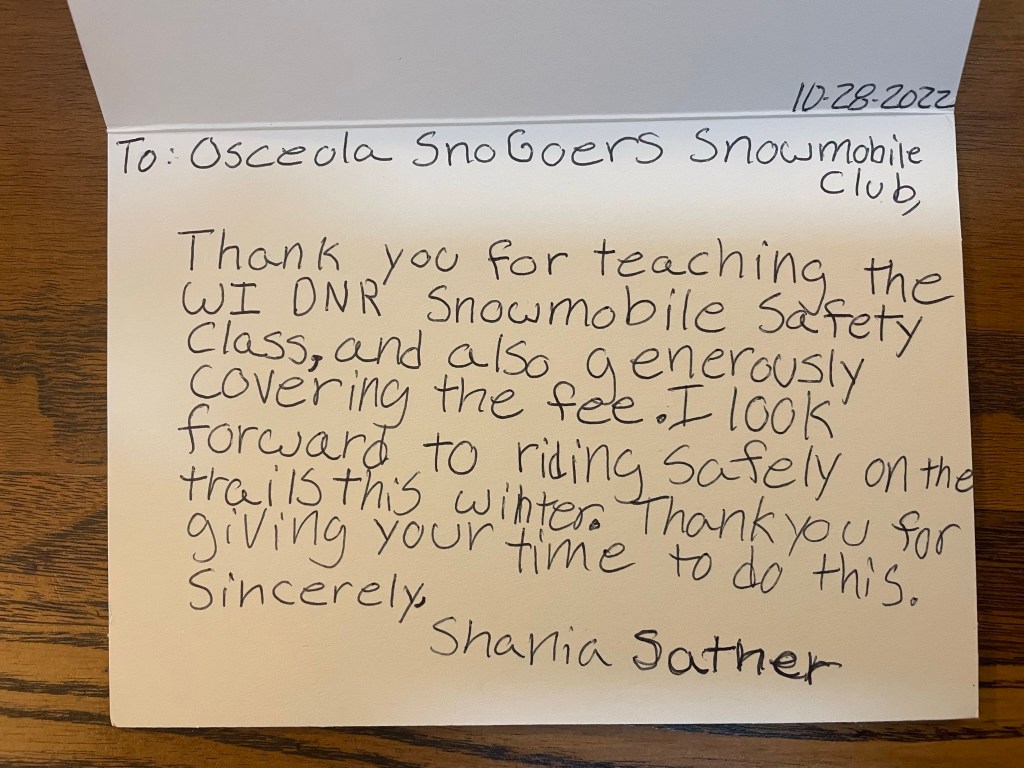 10-28-2022
To: Osceola SnoGoers Snowmobile
Club,
Thank you for teaching the
WI DNR Snowmobile Safety
Class, and also generously
covering the fee. I look
forward to riding safely on the
trails this winter. Thank you for
giving your time to do this.
Sincerely,
Shania Sather